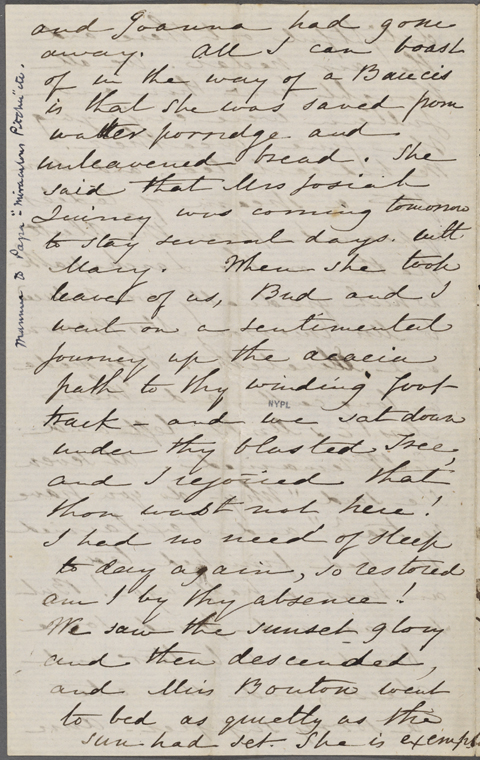 and Joanna had gone
away. All I can boast
of in the way of a Baucis
is that she was saved from
watter porridge and
unleavened bread. She
said that Mrs Josiah
Quincy was coming tomorrow
to stay several days with
Mary. When she took
leave of us, Bud and I
went on a sentimental
journey up the acacia
path to thy winding foot
track - and we sat down
under thy blasted Tree,
and I rejoiced that
thou wast not here!
I had no need of sleep
to day again, so restored
am I by thy absence!
We saw the sunset glory
and then descended,
and Miss Bouton went
to bed as quietly as the
sun had set. She is exempl
Mamma to Papa "miraculous Pitcher" etc.
NYPL